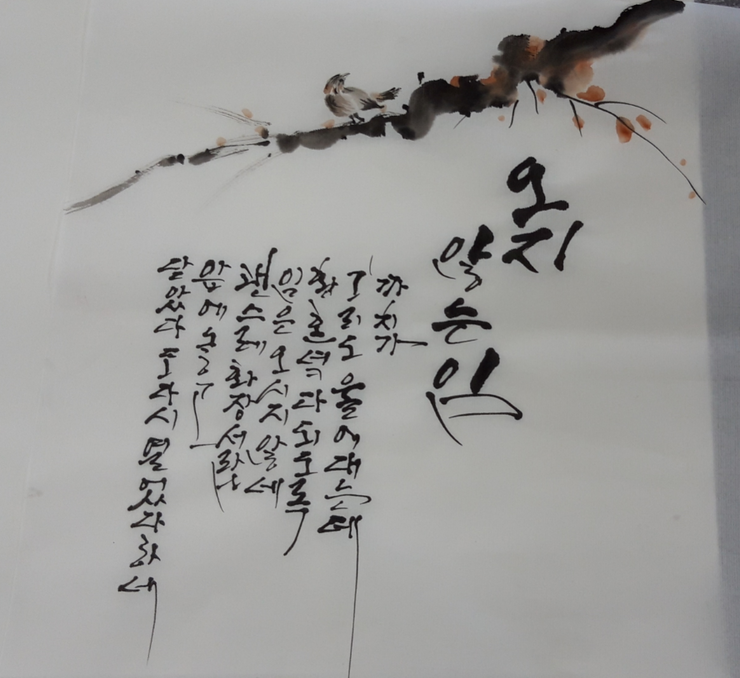 오지
않는 임
까치가
그리도 울어대는데
황혼녘 다 되도록
임은 오시지 않네
괜스레 화장서랍
앞에 놓고
닫았다 또다시 열었다 하네